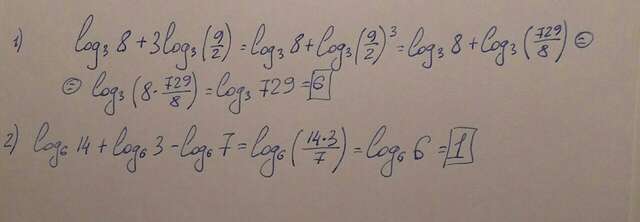 1) log₃ 8 + 3log₃(9/2) = log₃ 8 + log₃(9/2)³ = log₃ 8 + log₃(729/8) =
= log₃(8·729/8) = log₃ 729 = 6
2) log₆ 14 + log₆ 3 - log₆ 7 = log₆(14·3/7) = log₆ 6 = 1